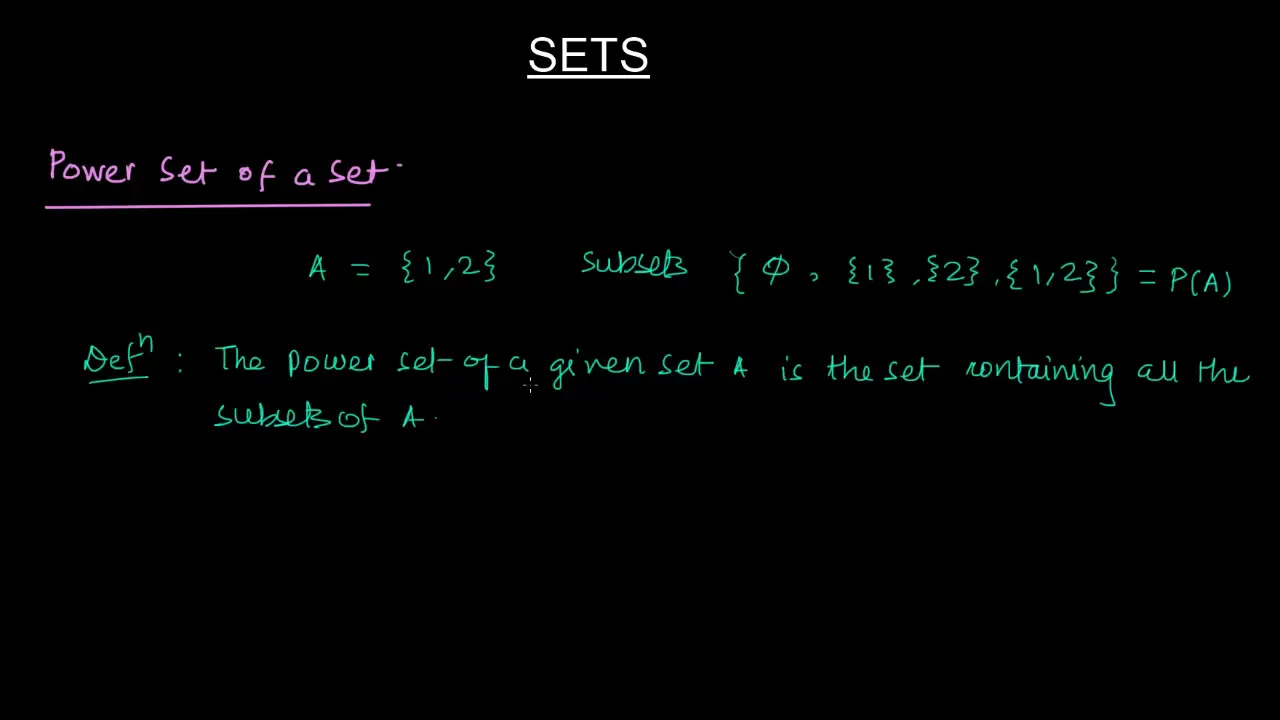 SETS
Power Set of a Set.
A = {1,2} Subsets { Φ, {1}, {2}, {1,2}} = P(A)
Defⁿ : The power set of a given set A is the set containing all the
subsets of A.